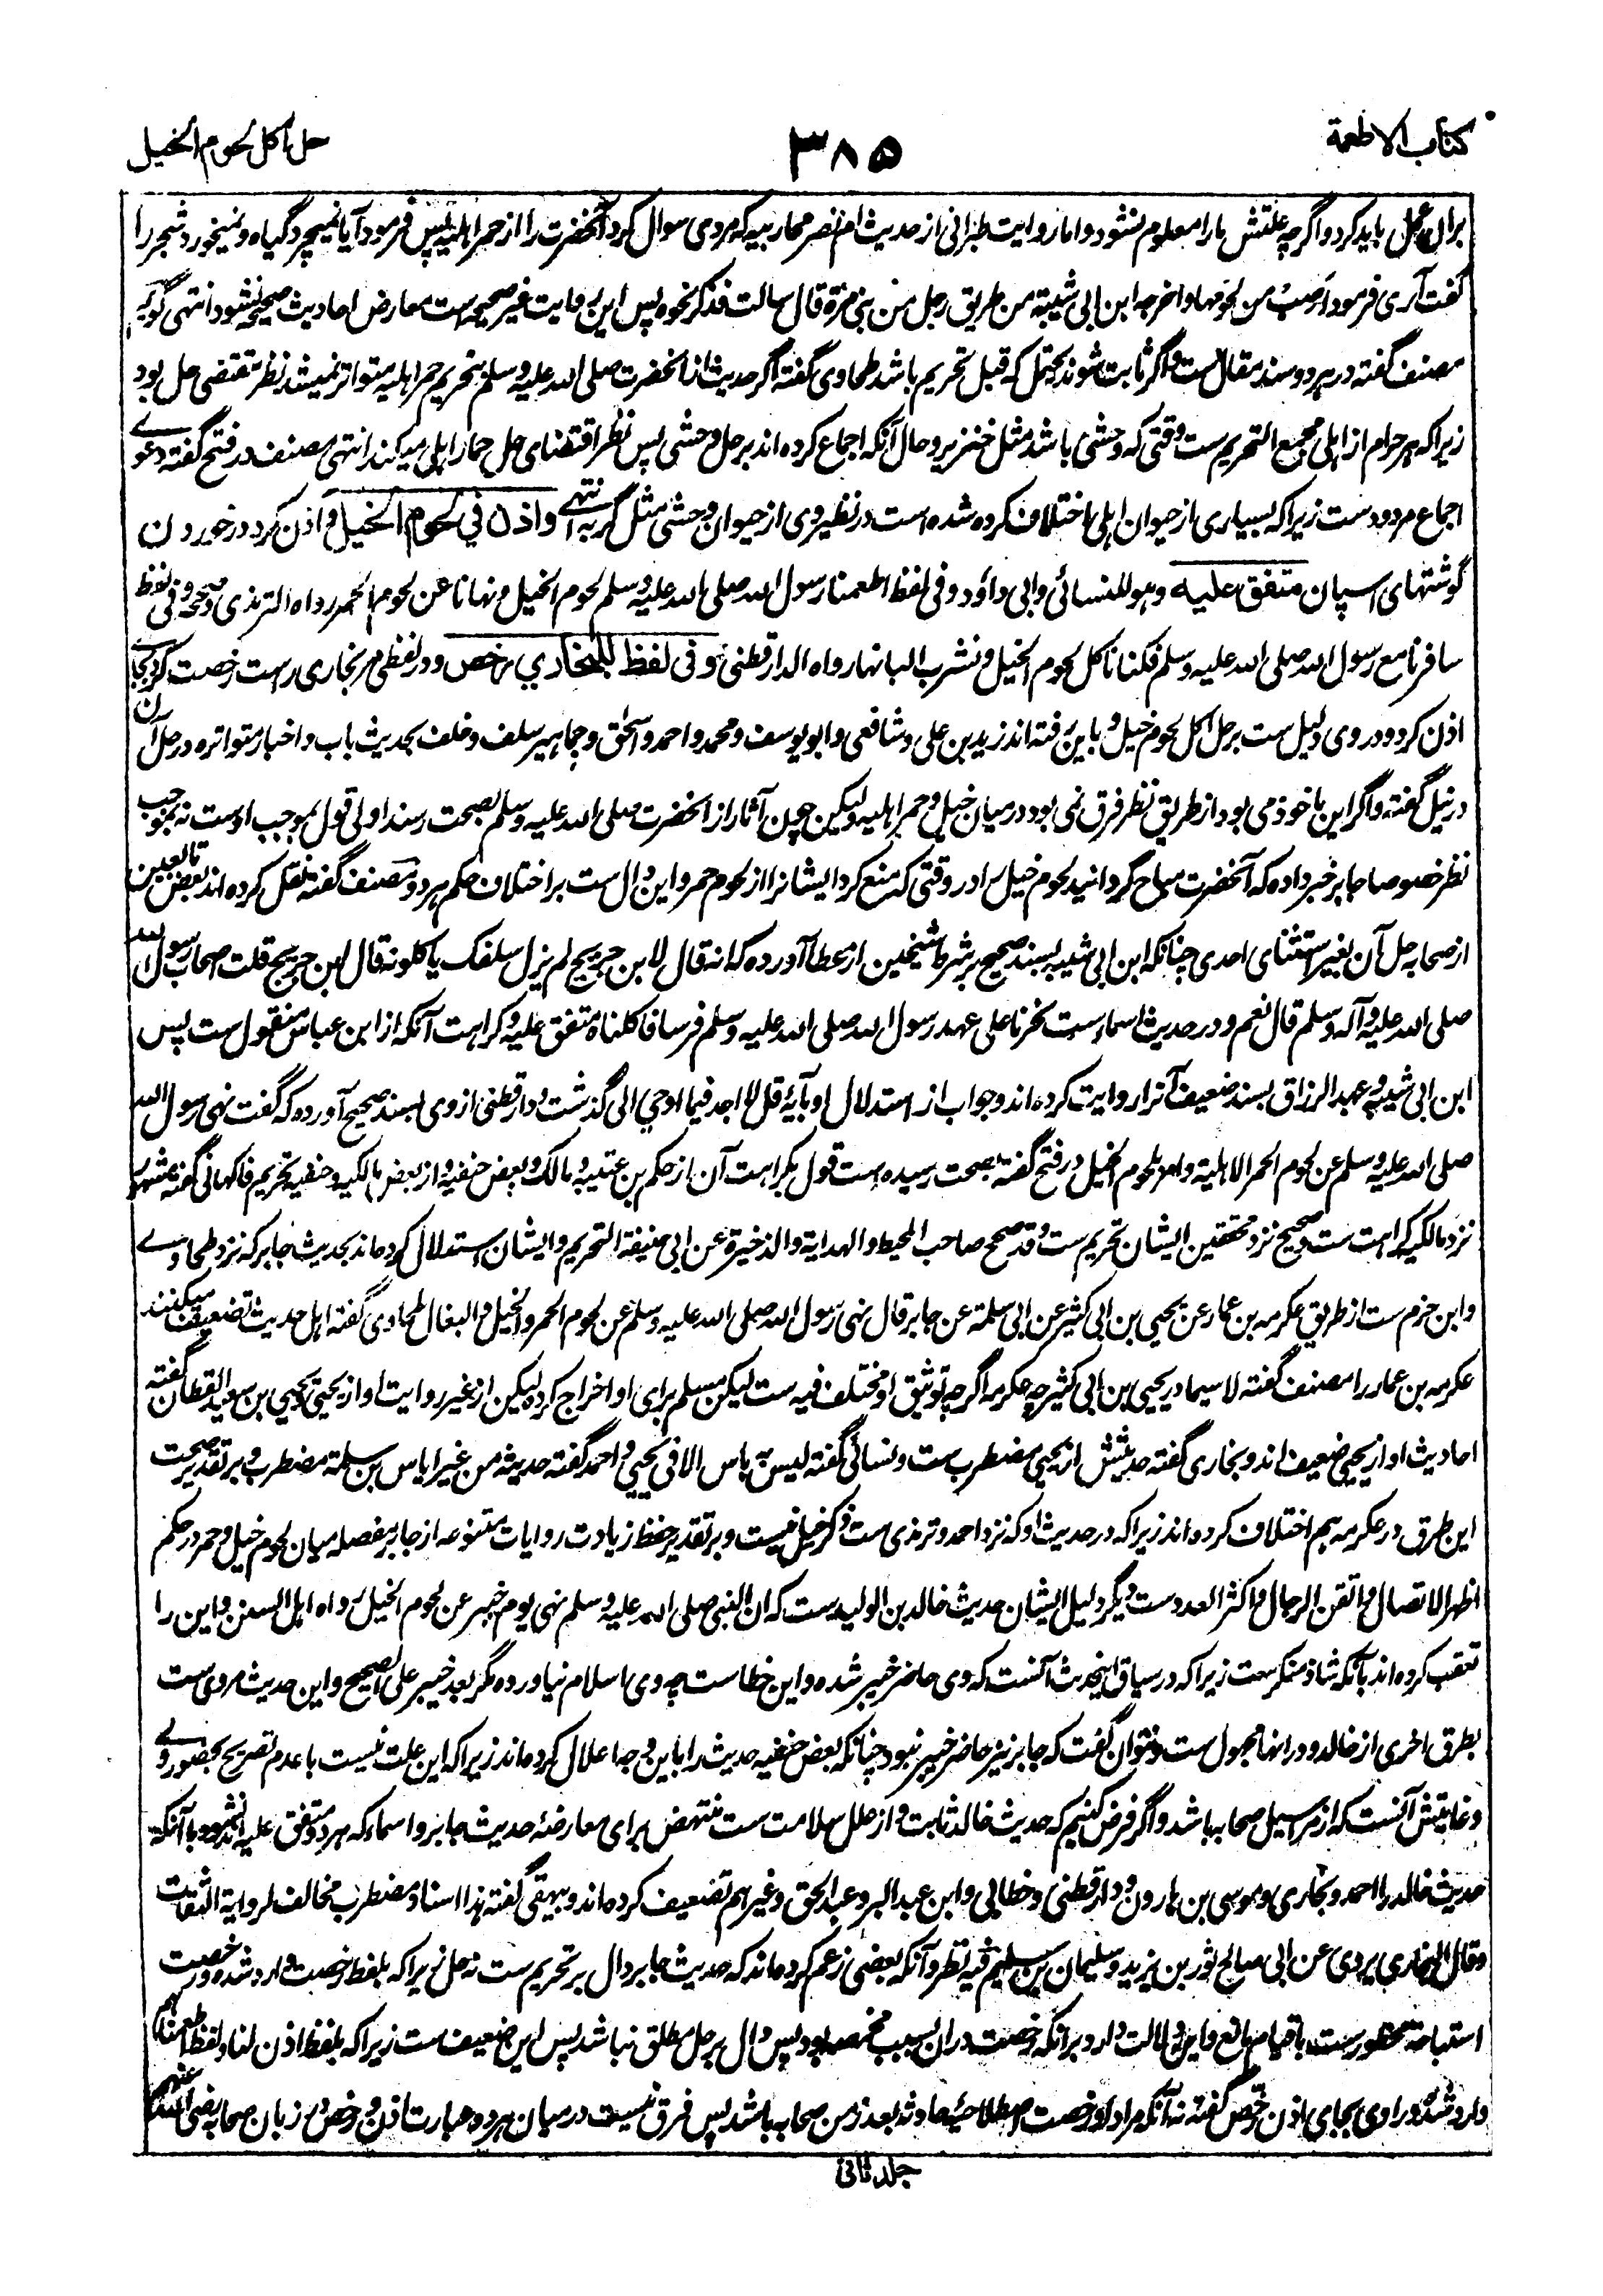 كتاب الاطعمة
۳۸۵
حل اكل لحوم الخيل
بران عمل باید کرد و اگرچه علتش مارا معلوم نشود و اما روایت طبرانی از حدیث ام نصر محاربیه که مردی سوال کرد آنحضرت را از حمر اهلیه پس فرمود آیا نمیچرد گیاه و نمیخورد شجر را
گفت آری فرمود اَصِبْ من لحومها و اخرجه ابن ابی شیبة من طریق رجل من بنی مرة قال سالت فذکر نحوه پس این روایت غیر صحیحه است معارض احادیث صحیحه نشود انتهی گویم
مصنف گفته در هر دو سند مقال ست و اگر ثابت شوند یحتمل که قبل تحریم باشد طحاوی گفته اگر حدیث از آنحضرت صلی الله علیه وسلم بتحریم حمر اهلیه متواتر نمیشد نظر مقتضی حل بود
زیرا که هر حرام از اهلی مجمع التحریم ست وقتی که وحشی باشد مثل خنزیر و حال آنکه اجماع کرده اند بر حل وحشی پس نظر اقتضای حل حمار اهلی میکند انتهی مصنف در فتح گفته دعوے
اجماع مردود ست زیرا که بسیاری از حیوان اهلی اختلاف کرده شده است در نظیر وی از حیوان وحشی مثل گربه انتهے واذن في لحوم الخيل و اذن کرد در خوردن
گوشتهای اسپان متفق عليه وهو للنسائی و ابی داؤد و فی لفظ اطعمنا رسول الله صلی الله علیه وسلم لحوم الخیل و نهانا عن لحوم الحمر رواه الترمذی و صححه و فی لفظ
سافرنا مع رسول الله صلی الله علیه وسلم فکنا ناکل لحوم الخیل و نشرب البانها رواه الدارقطنی وفى لفظ للبخاري رخص و در لفظی مر بخاری راست رخصت کرد بجاے
اذن کرد و در وی دلیل ست بر حل اکل لحوم خیل و باین رفته اند زید بن علی و شافعی و ابو یوسف و محمد و احمد و اسحٰق و جماهیر سلف و خلف بحدیث باب و اخبار متواتره در حل آن
در نیل گفته و اگر این ماخوذ می بود از طریق نظر فرق نمی بود در میان خیل و حمر اهلیه ولیکن چون آثار از آنحضرت صلی الله علیه وسلم بصحت رسند اولی قول بموجب اوست نه بموجب
نظر خصوصا جابر خبر داده که آنحضرت مباح گردانید لحوم خیل را در وقتی که منع کرد ایشانرا از لحوم حمر و این دال ست بر اختلاف حکم هر دو مصنف گفته نقل کرده اند بعض تابعین
از صحابه حل آن بغیر استثنای احدی چنانکه ابن ابی شیبه بسند صحیح بر شرط شیخین از عطا آورده که انه قال لابن جریج لم یزل سلفک یاکلونه قال ابن جریج قلت اصحاب رسول الله
صلی الله علیه و آله وسلم قال نعم و در حدیث اسماء ست نحرنا علی عهد رسول الله صلی الله علیه وسلم فرسا فاکلناه متفق علیه و کراهت آنکه از ابن عباس منقول ست پس
ابن ابی شیبه و عبد الرزاق بسند ضعیف آنرا روایت کرده اند و جواب از استدلال او بآیۂ قل لا اجد فیما اوحي الی گذشت و دارقطنی از وی بسند صحیح آورده که گفت نهی رسول الله
صلی الله علیه وسلم عن لحوم الحمر الاهلیة و امر بلحوم الخیل در فتح گفته بصحت رسیده است قول بکراهت آن از حکم بن عتیبه و مالک و بعض حنفیه و از بعض مالکیه و حنفیه تحریم فاکهانی گفته مشهور
نزد مالکیه کراهت ست و صحیح نزد محققین ایشان تحریم ست و قد صحح صاحب المحیط و الهدایة و الذخیرة عن ابی حنیفة التحریم و ایشان استدلال کرده اند بحدیث جابر که نزد طحاوے
و ابن حزم ست از طریق عکرمه بن عمار عن یحیی بن ابی کثیر عن ابی سلمة عن جابر قال نهی رسول الله صلی الله علیه وسلم عن لحوم الحمر و الخیل و البغال طحاوی گفته اهل حدیث تضعیف میکنند
عکرمه بن عمار را مصنف گفته لا سیما در یحیی بن ابی کثیر چه عکرمه اگرچه توثیق او مختلف فیه ست لیکن مسلم برای او اخراج کرده لیکن از غیر روایت او از یحیی و یحیی بن سعید القطان گفته
احادیث او از یحیی ضعیف اند و بخاری گفته حدیثش از یحیی مضطرب ست و نسائی گفته لیس به باس الا فی یحیی و احمد گفته حدیثه من غیر ایاس بن سلمة مضطرب و بر تقدیر صحت
این طرق در عکرمه هم اختلاف کرده اند زیرا که در حدیث او که نزد احمد و ترمذی ست ذکر خیل نیست و بر تقدیر حفظ زیادت روایات متنوعه از جابر مفصله میان لحوم خیل و حمر در حکم
اظهر الاتصال و اتقن الرجال و اکثر العدد ست و دیگر دلیل ایشان حدیث خالد بن الولید ست که ان النبی صلی الله علیه وسلم نهی یوم خیبر عن لحوم الخیل رواه اهل السنن و این را
تعقب کرده اند بآنکه شاذ منکر ست زیرا که در سیاق اینحدیث آنست که وی حاضر خیبر شده و این خطاست چه وی اسلام نیاورده مگر بعد خیبر علی الصحیح و این حدیث مروی ست
بطرق اخری از خالد و در انها مجهول ست و نتوان گفت که جابر نیز حاضر خیبر نبود چنانکه بعض حنفیه حدیث را باین وجه اعلال کرده اند زیرا که این علت نیست با عدم تصریح بحضور وے
و غایتش آنست که از مراسیل صحابه باشد و اگر فرض کنیم که حدیث خالد ثابت و از علل سلامت ست منتهض برای معارضۂ حدیث جابر و اسماء که هر دو متفق علیه اند نشود با آنکه
حدیث خالد را احمد و بخاری و موسی بن هارون و دارقطنی و خطابی و ابن عبد البر و عبد الحق و غیرهم تضعیف کرده اند و بیهقی گفته هذا اسناد مضطرب مخالف لروایة الثقات
وقال البخاری یروی عن ابی صالح ثور بن یزید و سلیمان بن سلیم فیه نظر و آنکه بعضی زعم کرده اند که حدیث جابر دال بر تحریم ست نه حل زیرا که بلفظ رخصت وارد شده و رخصت
استباحة محظور ست با قیام مانع و این دلالت دارد برانکه رخصت دران بسبب مخمصه بود پس دال بر حل مطلق نباشد پس این ضعیف ست زیرا که بلفظ اذن لنا و لفظ اطعمنا هم
وارد شده و راوی بجای اذن رخّص گفته نه آنکه مراد او رخصت اصطلاحیۂ حادثه بعد زمن صحابه باشد پس فرق نیست در میان هر دو عبارت اذن و رخص در زبان صحابه رضی الله عنهم
جلد ثانی